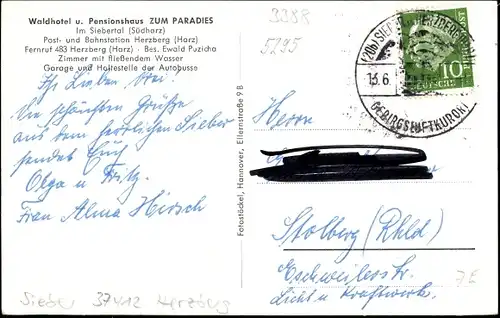 Waldhotel u. Pensionshaus ZUM PARADIES
Im Siebertal (Südharz)
Post- und Bahnstation Herzberg (Harz)
Fernruf 483 Herzberg (Harz) · Bes. Ewald Puzicha
Zimmer mit fließendem Wasser
Garage und Haltestelle der Autobusse
Ihr Lieben Drei!
Die schönsten Grüße
aus dem herrlichen Sieber
sendet Euch
Olga u. Fritz.
Frau Alma Hirsch
Sieber 37412 Herzberg
Fotostöckel, Hannover, Ellernstraße 9 B
3388
5295
(20b) SIEBER HERZBERG
13.6.
GEBIRGSLUFTKURORT
10
Herrn
Stolberg (Rhld)
Eschweilerstr.
Licht u. Kraftwerke.
7E